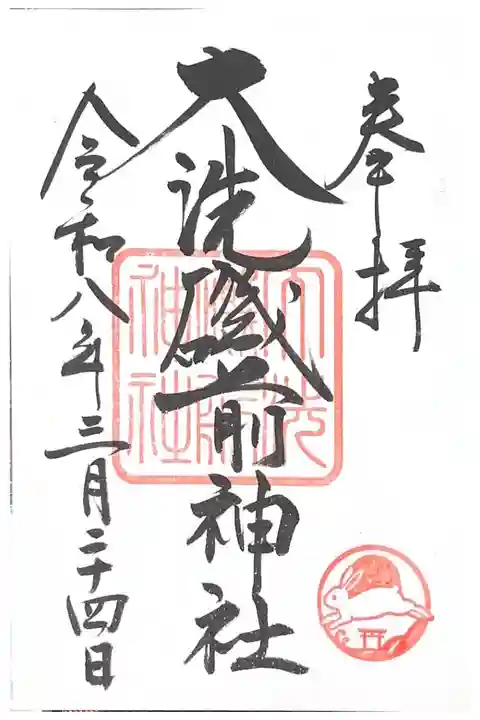 奉拝
大洗磯前神社
大洗磯前神社
令和八年三月二十四日